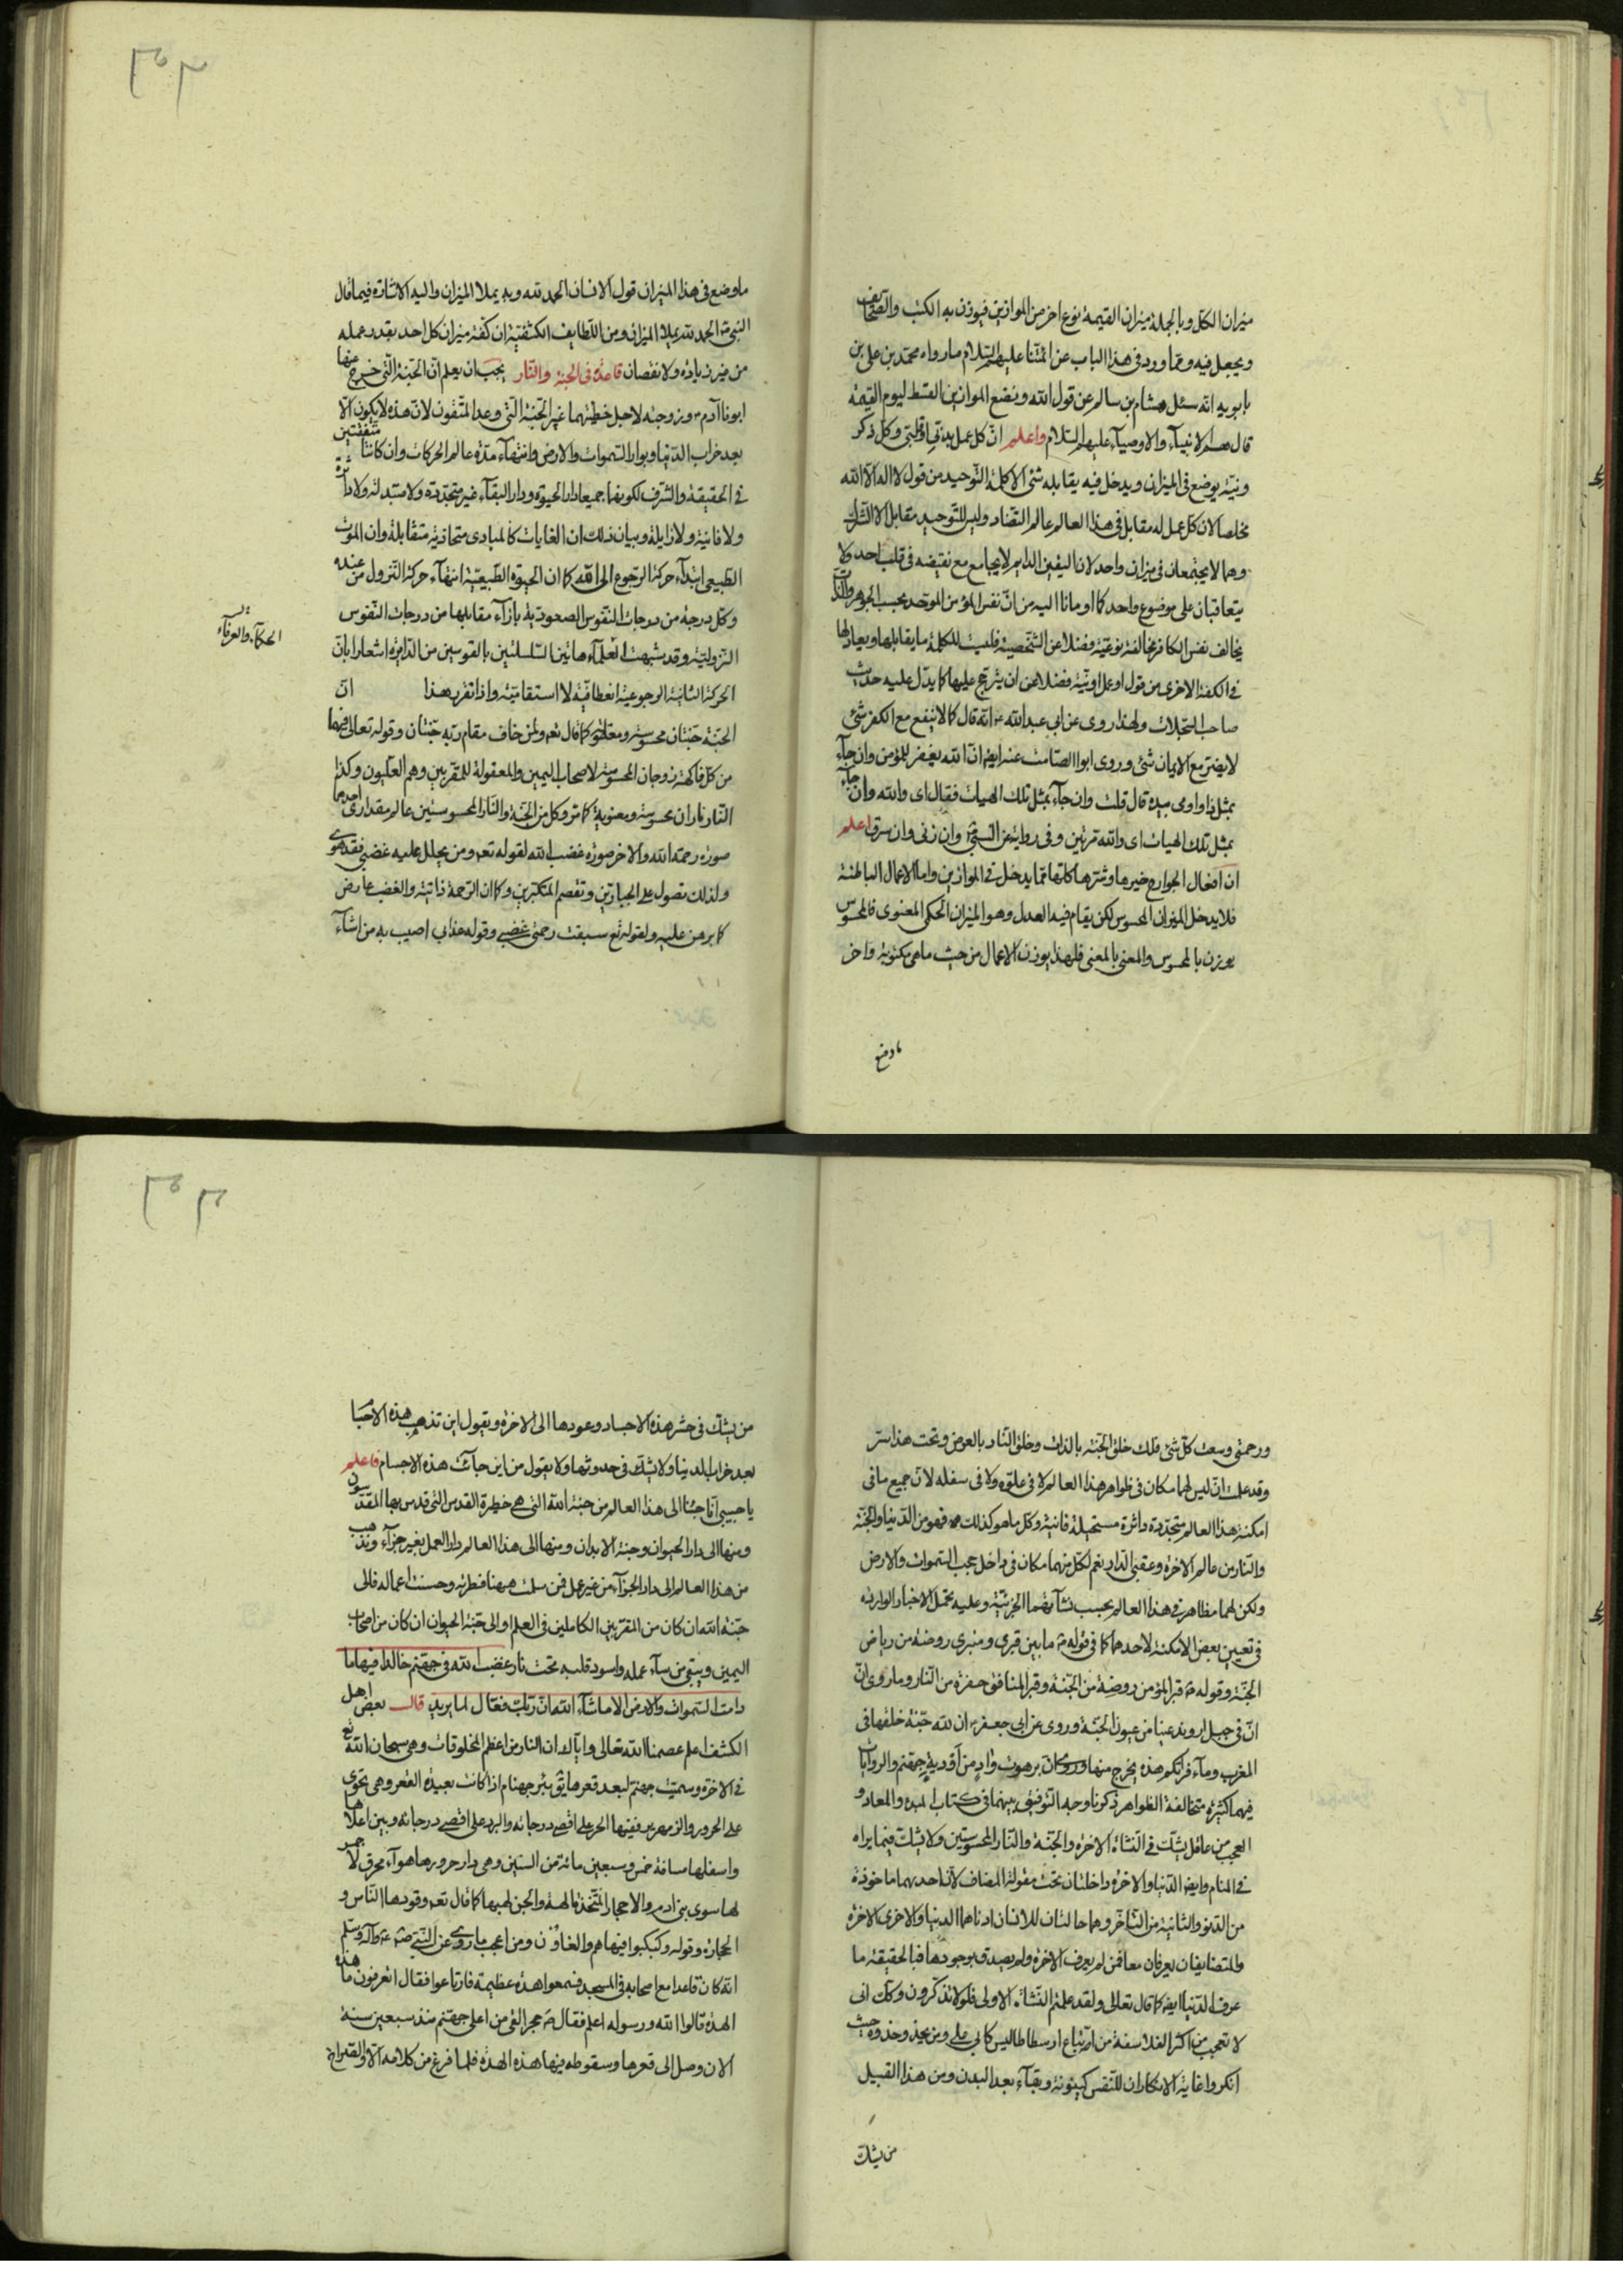 ميزان الكل وبالجملة ميزان القيمة نوع اخر من الموازين فيوزن به الكتب والصحائف
ويجعل فيه ومما ورد فى هذا الباب عن ائمتنا عليهم السلام ما رواه محمد بن على بن
بابويه انه سئل هشام بن سالم عن قول الله ونضع الموازين القسط ليوم القيمة
قال هم الانبياء والاوصياء عليهم السلام واعلم ان كل عمل بدنى او قلبى وكل ذكر
ونية يوضع فى الميزان ويدخل فيه يقابله شئ الا كلمة التوحيد من قول لا اله الا الله
مخلصا لان كل عمل له مقابل فى هذا العالم عالم التضاد وليس للتوحيد مقابل الا الشرك
وهما لا يجتمعان فى ميزان واحد لان اليقين الدايم لا يجامع مع نقيضه فى قلب احد ولا
يتعاقبان على موضوع واحد كما اومانا اليه من ان نفس المؤمن الموحد بحسب الجوهر والذات
يخالف نفس الكافر مخالفة نوعية فضلا عن الشخصية فليست للكلمة ما يقابلها ويعادلها
فى الكفة الاخرى من قول او عمل او نية فضلا عن ان يترجح عليها كما يدل عليه حديث
صاحب السجلات ولهذا روى عن ابى عبد الله ع انه قال كما لا ينفع مع الكفر شئ
لا يضر مع الايمان شئ وروى ابوا الصامت عنه ايضا ان الله يغفر للمؤمن وان جاء
بمثل ذا واومى بيده قال قلت وان جاء بمثل تلك الهيات فقال اى والله وان جاء
بمثل تلك الهيات اى والله مرتين وفى رواية عن النبى وان زنى وان سرق اعلم
ان افعال الجوارح خيرها وشرها كلها مما يدخل فى الموازين واما الاعمال الباطنة
فلا يدخل الميزان المحسوس لكن يقام فيه العدل وهو الميزان الحكمى المعنوى فالمحسوس
يوزن بالمحسوس والمعنى بالمعنى فلهذا يوزن الاعمال من حيث ما هى مكتوبة واخر
ما وضع
ما وضع فى هذا الميزان قول الانسان الحمد لله وبه يملا الميزان واليه الاشارة فيما قال
النبى الحمد لله يملا الميزان ومن اللطايف الكشفية ان كفة ميزان كل احد بقدر عمله
من غير زيادة ولا نقصان قاعدة فى الجنة والنار يجب ان يعلم ان الجنة التى خرج عنها
ابونا آدم وزوجته لاجل خطيئتهما غير الجنة التى وعد المتقون لان هذه لا يكون الا
بعد خراب الدنيا وبوار السموات والارض وانتهاء مدة عالم الحركات وان كانتا متفقتين
فى الحقيقة والشرف لكونهما جميعا دار الحيوة ودار البقاء غير متجددة ولا متبدلة ولا داثرة
ولا فانية ولا زايلة وبيان ذلك ان الغايات كالمبادى متحاذية متقابلة وان الموت
الطبيعى ابتداء حركة الرجوع الى الله كما ان الحيوة الطبيعية انتهاء حركة النزول من عنده
وكل درجة من درجات النفوس الصعودية بازاء مقابلها من درجات النفوس
النزولية وقد شبهت العلماء هاتين السلسلتين بالقوسين من الدايرة اشعارا بان
الحكماء والعرفاء
الحركة الثانية الرجوعية انعطافية لا استقامتية واذا تقرر هذا ان
الجنة جنتان محسوسة ومعقولة كما قال تعم ولمن خاف مقام ربه جنتان وقوله تعالى فيهما
من كل فاكهة زوجان المحسوسة لاصحاب اليمين والمعقولة للمقربين وهم العليون وكذا
النار ناران محسوسة ومعنوية كما مر وكل من الجنة والنار المحسوستين عالم مقدارى احدهما
صورة رحمة الله والاخر صورة غضب الله لقوله تعم ومن يحلل عليه غضبى فقد هوى
ولذلك تصول على الجبارين وتقصم المتكبرين وكما ان الرحمة ذاتية والغضب عارض
كما برهن عليه ولقوله تع سبقت رحمتى غضبى وقوله عذابى اصيب به من اشاء
ورحمتى وسعت كل شئ فلك خلق الجنة بالذات وخلق النار بالعرض وتحت هذا سر
وقد علمت ان ليس لهما مكان فى ظواهر هذا العالم لا فى علوه ولا فى سفله لان جميع ما فى
امكنة هذا العالم متجددة داثرة مستحيلة فانية وكل ما هو كذلك فهو من الدنيا والجنة
والنار من عالم الاخرة وعقبى الدار نعم لكل منهما مكان فى داخل حجب السموات والارض
ولكن لهما مظاهر فى هذا العالم بحسب نشآتهما الجزئية وعليه يحمل الاخبار الواردة
فى تعيين بعض الامكنة لاحدهما كما فى قوله ص ما بين قبرى ومنبرى روضة من رياض
الجنة وقوله ص قبر المؤمن روضة من الجنة وقبر المنافق حفرة من النار وما روى ان
ان فى جبل اروند عينا من عيون الجنة وروى عن ابى جعفر ان لله جنة خلقها فى
المغرب وماء فراتكم هذه يخرج منها وروى ان برهوت واد من اودية جهنم والروايات
فيهما كثيرة متخالفة الظواهر ذكرنا وجه التوفيق بينهما فى كتاب المبدء والمعاد و
العجب من عاقل يشك فى النشاة الاخرة والجنة والنار المحسوستين ولا يشك فيما يراه
فى المنام وايضا الدنيا والاخرة داخلتان تحت مقولة المضاف لان احديهما ماخوذة
من الدنو والثانية من التاخر وهما حالتان للانسان ادناهما الدنيا والاخرى الاخرة
والمتضايفان يعرفان معا فمن لم يعرف الاخرة ولم يصدق بوجودها فبالحقيقة ما
عرف الدنيا ايضا كما قال تعالى ولقد علمتم النشاة الاولى فلولا تذكرون وكل انى
لا تعجب من اكثر الفلاسفة من اتباع ارسطاطاليس كابى على ومن يحذو حذوه حيث
انكروا غاية الانكار ان للنفس كينونة وبقاء بعد البدن ومن هذا القبيل
من يشك
من يشك فى حشر هذه الاجساد وعودها الى الاخرة ويقول اين تذهب هذه الاجسا
بعد خراب الدنيا ولا يشك فى حدوثها ولا يقول من اين جاءت هذه الاجسام فاعلم
يا حبيبى انا جئنا الى هذا العالم من جنة الله التى هى حظيرة القدس التى قدس بها المقدسون
ومنها الى دار الحيوان وجنة الابدان ومنها الى هذا العالم دار العمل بغير جزاء ونذهب
من هذا العالم الى دار الجزاء من غير عمل فمن سلمت ههنا فطرته وحسنت اعماله فالى
جنة الله ان كان من المقربين الكاملين فى العلم او الى جنة الحيوان ان كان من اصحاب
اليمين ويبقى من ساء عمله واسود قلبه تحت نار غضب الله فى جهنم خالدا فيها ما
دامت السموات والارض الا ما شاء الله ان ربك فعال لما يريد قال بعض اهل
الكشف اعلم عصمنا الله تعالى واياك ان النار من اعظم المخلوقات وهى سجن الله تع
فى الاخرة وسميت جهنم لبعد قعرها يق بئر جهنام اذا كانت بعيدة القعر وهى تحوى
على الحرور والزمهرير ففيها الحر على اقصى درجاته والبرد على اقصى درجاته وبين اعلاها
واسفلها مسافة خمس وسبعين مائة من السنين وهى دار حرورها هواء محرق لا جمر
لها سوى بنى ادم والاحجار المتخذة الهة والجن لهبها كما قال تعم وقودها الناس و
الحجارة وقوله وكبكبوا فيها هم والغاون ومن اعجب ما روى عن النبى صلى الله عليه وآله وسلم
انه كان قاعدا مع اصحابه فى المسجد فسمعوا هدة عظيمة فارتاعوا فقال اتعرفون ما هذه
الهدة قالوا الله ورسوله اعلم فقال ص حجر القى من اعلى جهنم منذ سبعين سنة
الان وصل الى قعرها وسقوطه فيها هذه الهدة فلما فرغ من كلامه الا والصراخ